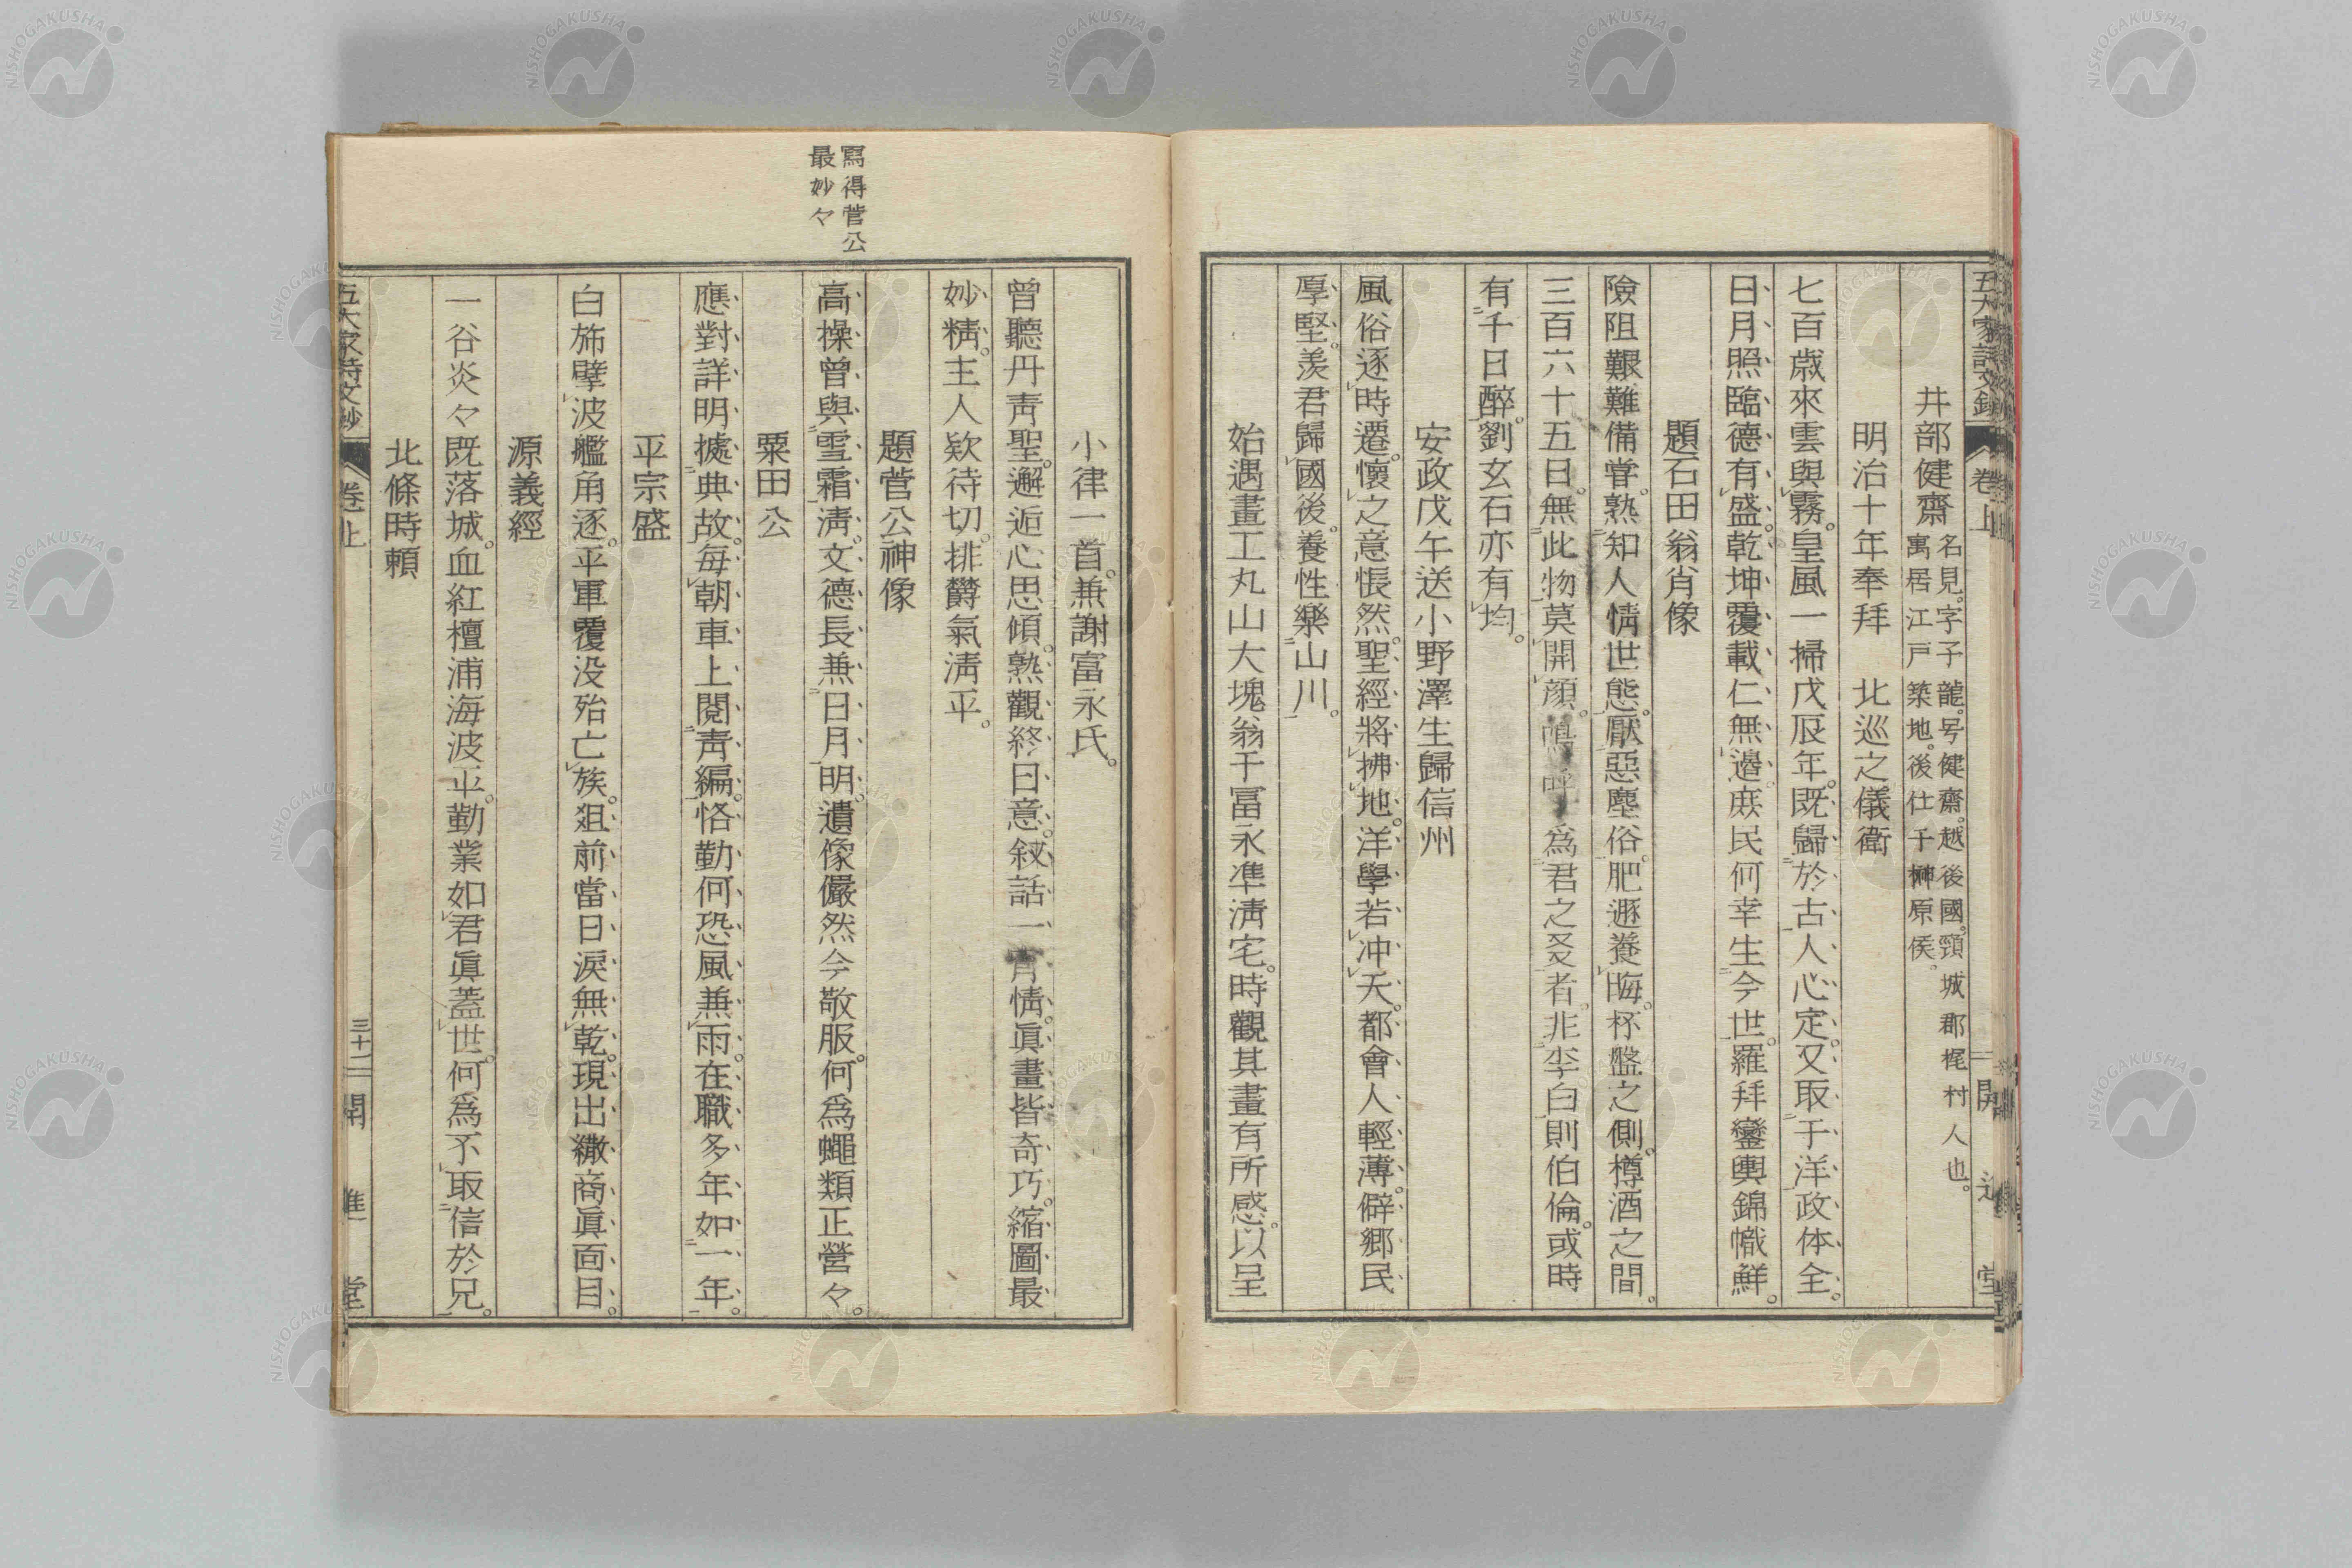 井部健齋
名見。字子龍。号健齋。越後國。頸城郡梶村人也。
寓居江戸築地。後仕于榊原侯。
明治十年奉拜　北巡之儀衛
七百歳來雲與霧。皇風一掃戊辰年。既歸於古人心定。又取于洋政体全。
日月照臨德有盛。乾坤覆載仁無邉。庶民何幸生今世。羅拜鑾輿錦幟鮮。
題石田翁肖像
險阻艱難備甞。熟知人情世態。厭惡塵俗。肥遯養晦。杯盤之側。樽酒之間。
三百六十五日。無此物莫開顔。嗚呼爲君之友者。非李白則伯倫。或時
有千日醉。劉玄石亦有均。
安政戊午送小野澤生歸信州
風俗逐時遷。懷之意悵然。聖經將拂地。洋學若冲天。都會人輕薄。僻郷民
厚堅。羨君歸國後。養性樂山川。
始遇畫工丸山大塊翁干冨永準淸宅。時觀其畫有所感。以呈
小律一首。兼謝富永氏。
曾聽丹靑聖。邂逅心思傾。熟觀終日意。敍話一宵情。眞畫皆奇巧。縮圖最
妙精。主人欵待切。排欝氣淸平。
寫得菅公
最妙々
題菅公神像
高操曾與雪霜淸。文德長兼日月明。遺像儼然今敬服。何爲蠅類正營々。
粟田公
應對詳明據典故。毎朝車上閲靑編。恪勤何恐風兼雨。在職多年如一年。
平宗盛
白斾擘波艦角逐。平軍覆没殆亡族。俎前當日涙無乾。現出繖商眞面目。
源義經
一谷炎々既落城。血紅檀浦海波平。勤業如君眞蓋世。何爲不取信於兄。
北條時頼
五大家詩文鈔　卷上　三十二　開進堂